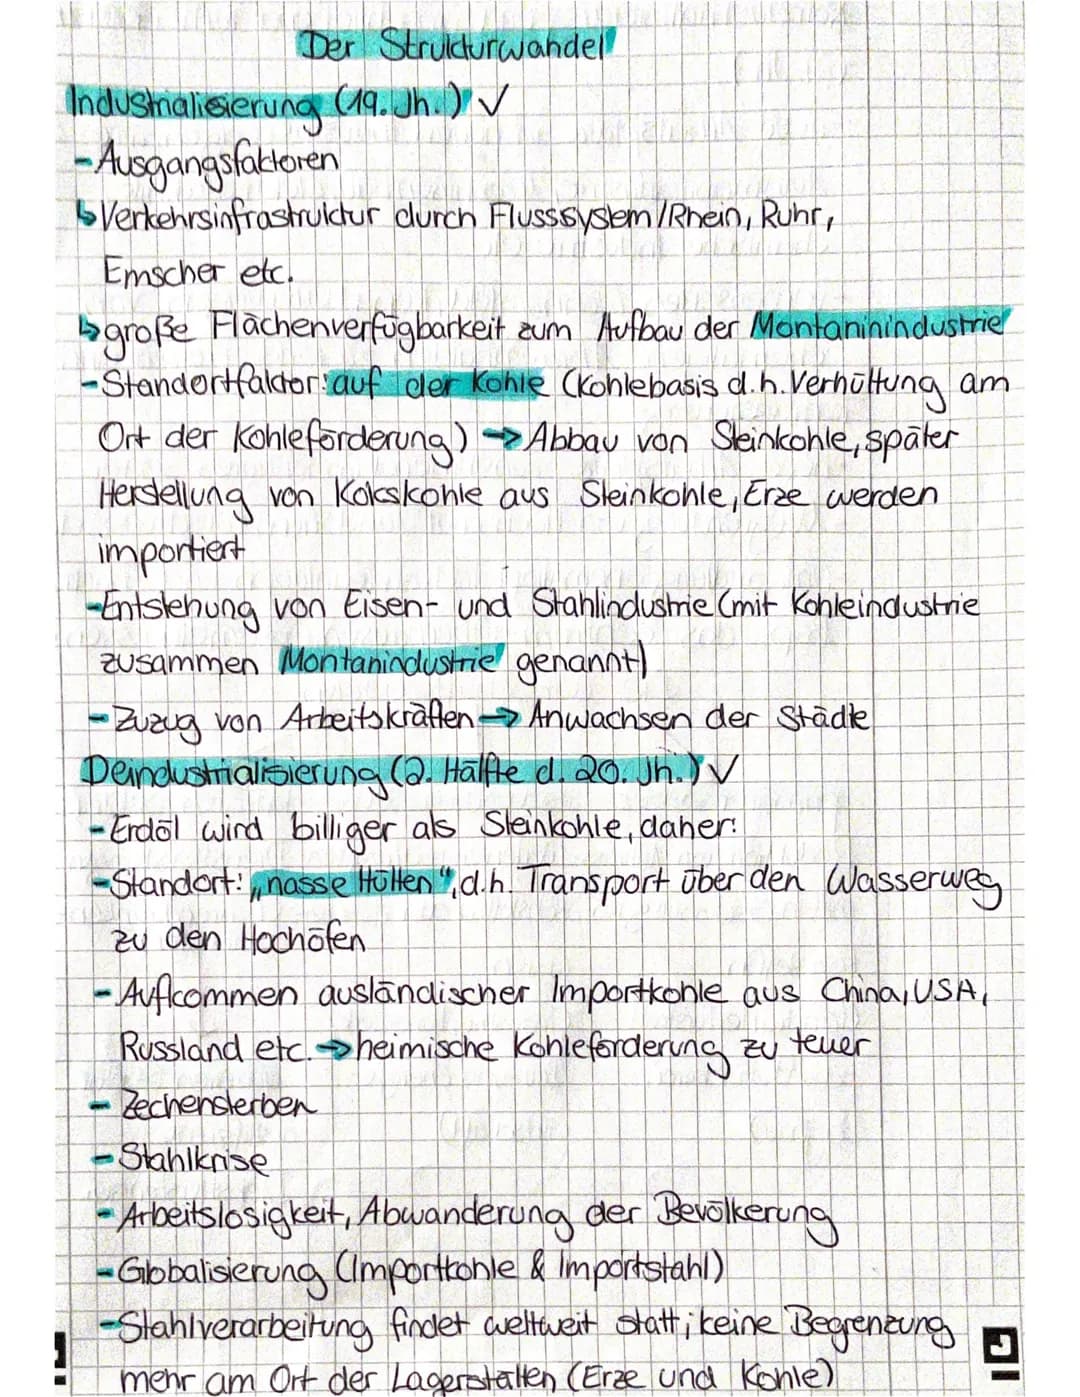 Der Strukturwandel
Industrialisierung (19. Jh.) ✓
- Ausgangsfaktoren
↳ Verkehrsinfrastruktur durch Flusssystem/Rhein, Ruhr,
Emscher etc.
↳ große Flächenverfügbarkeit zum Aufbau der Montaninindustrie
- Standortfaktor: auf der Kohle (Kohlebasis d.h. Verhüttung am
Ort der Kohleförderung) → Abbau von Steinkohle, später
Herstellung von Kokskohle aus Steinkohle, Erze werden
importiert
- Entstehung von Eisen- und Stahlindustrie (mit Kohleindustrie
zusammen Montanindustrie genannt)
- Zuzug von Arbeitskräften → Anwachsen der Städte
Deindustrialisierung (2. Hälfte d. 20. Jh.) ✓
- Erdöl wird billiger als Steinkohle, daher:
- Standort: „nasse Hütten“, d.h. Transport über den Wasserweg
zu den Hochöfen
- Aufkommen ausländischer Importkohle aus China, USA,
Russland etc. → heimische Kohleförderung zu teuer
- Zechensterben
- Stahlkrise
- Arbeitslosigkeit, Abwanderung der Bevölkerung
- Globalisierung (Importkohle & Importstahl)
- Stahlverarbeitung findet weltweit statt; keine Begrenzung
mehr am Ort der Lagerstätten (Erze und Kohle)